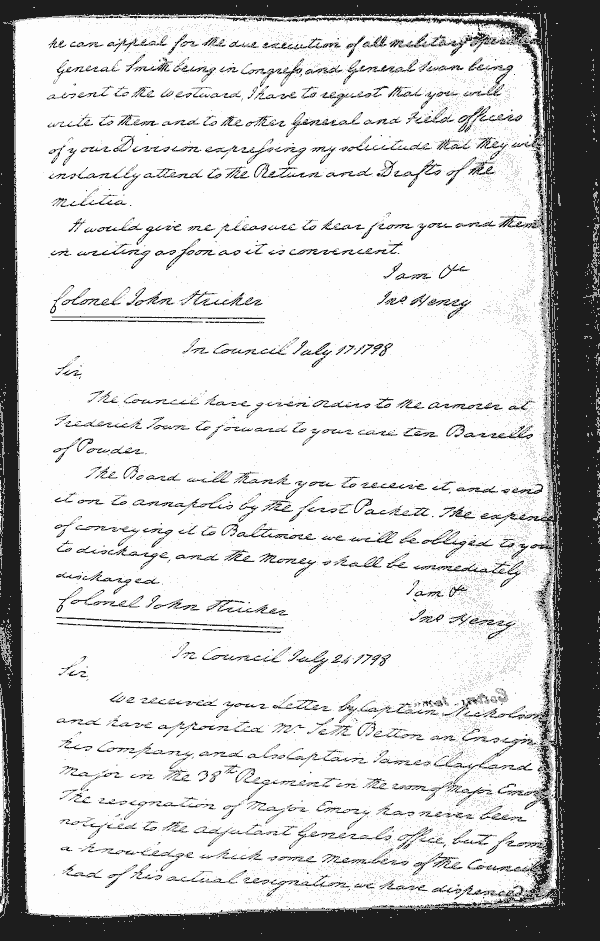 he can appeal for the due execution of all military
General Smith being in Congress, and General Swan being
absent to the Westward, I have to request that you will
write to them and to the other General and Field officers
of your Division expressing my solicitude that they will
instantly attend to the Return and Drafts of the
militia.
It would give me pleasure to hear from you and them
in writing as soon as it is convenient.
I am &c
Colonel John Stricker Jno Henry
In Council July 17 1798
Sir,
The Council have given orders to the armorer at
Frederick Town to forward to your care ten Barrells
of Powder.
The Board will thank you to receive it, and send
it on to Annapolis by the first Packett. The expence
of conveying it to Baltimore we will be obliged to you
to discharge, and the money shall be immediately
discharged.
I am &
Colonel John Stricker Jno Henry
In Council July 24 1798
Sir,
We received your Letter by Captain Nicholson
and have appointed Mr Seth Betton an Ensign
his Company, and also Captain James Clayland
major in the 38th Regiment in the room of Major Emory
The resignation of Major Emory has never been
notified to the adjutant General's office, but from
a knowledge which some members of the Council
had of his actual resignation, we have dispenced